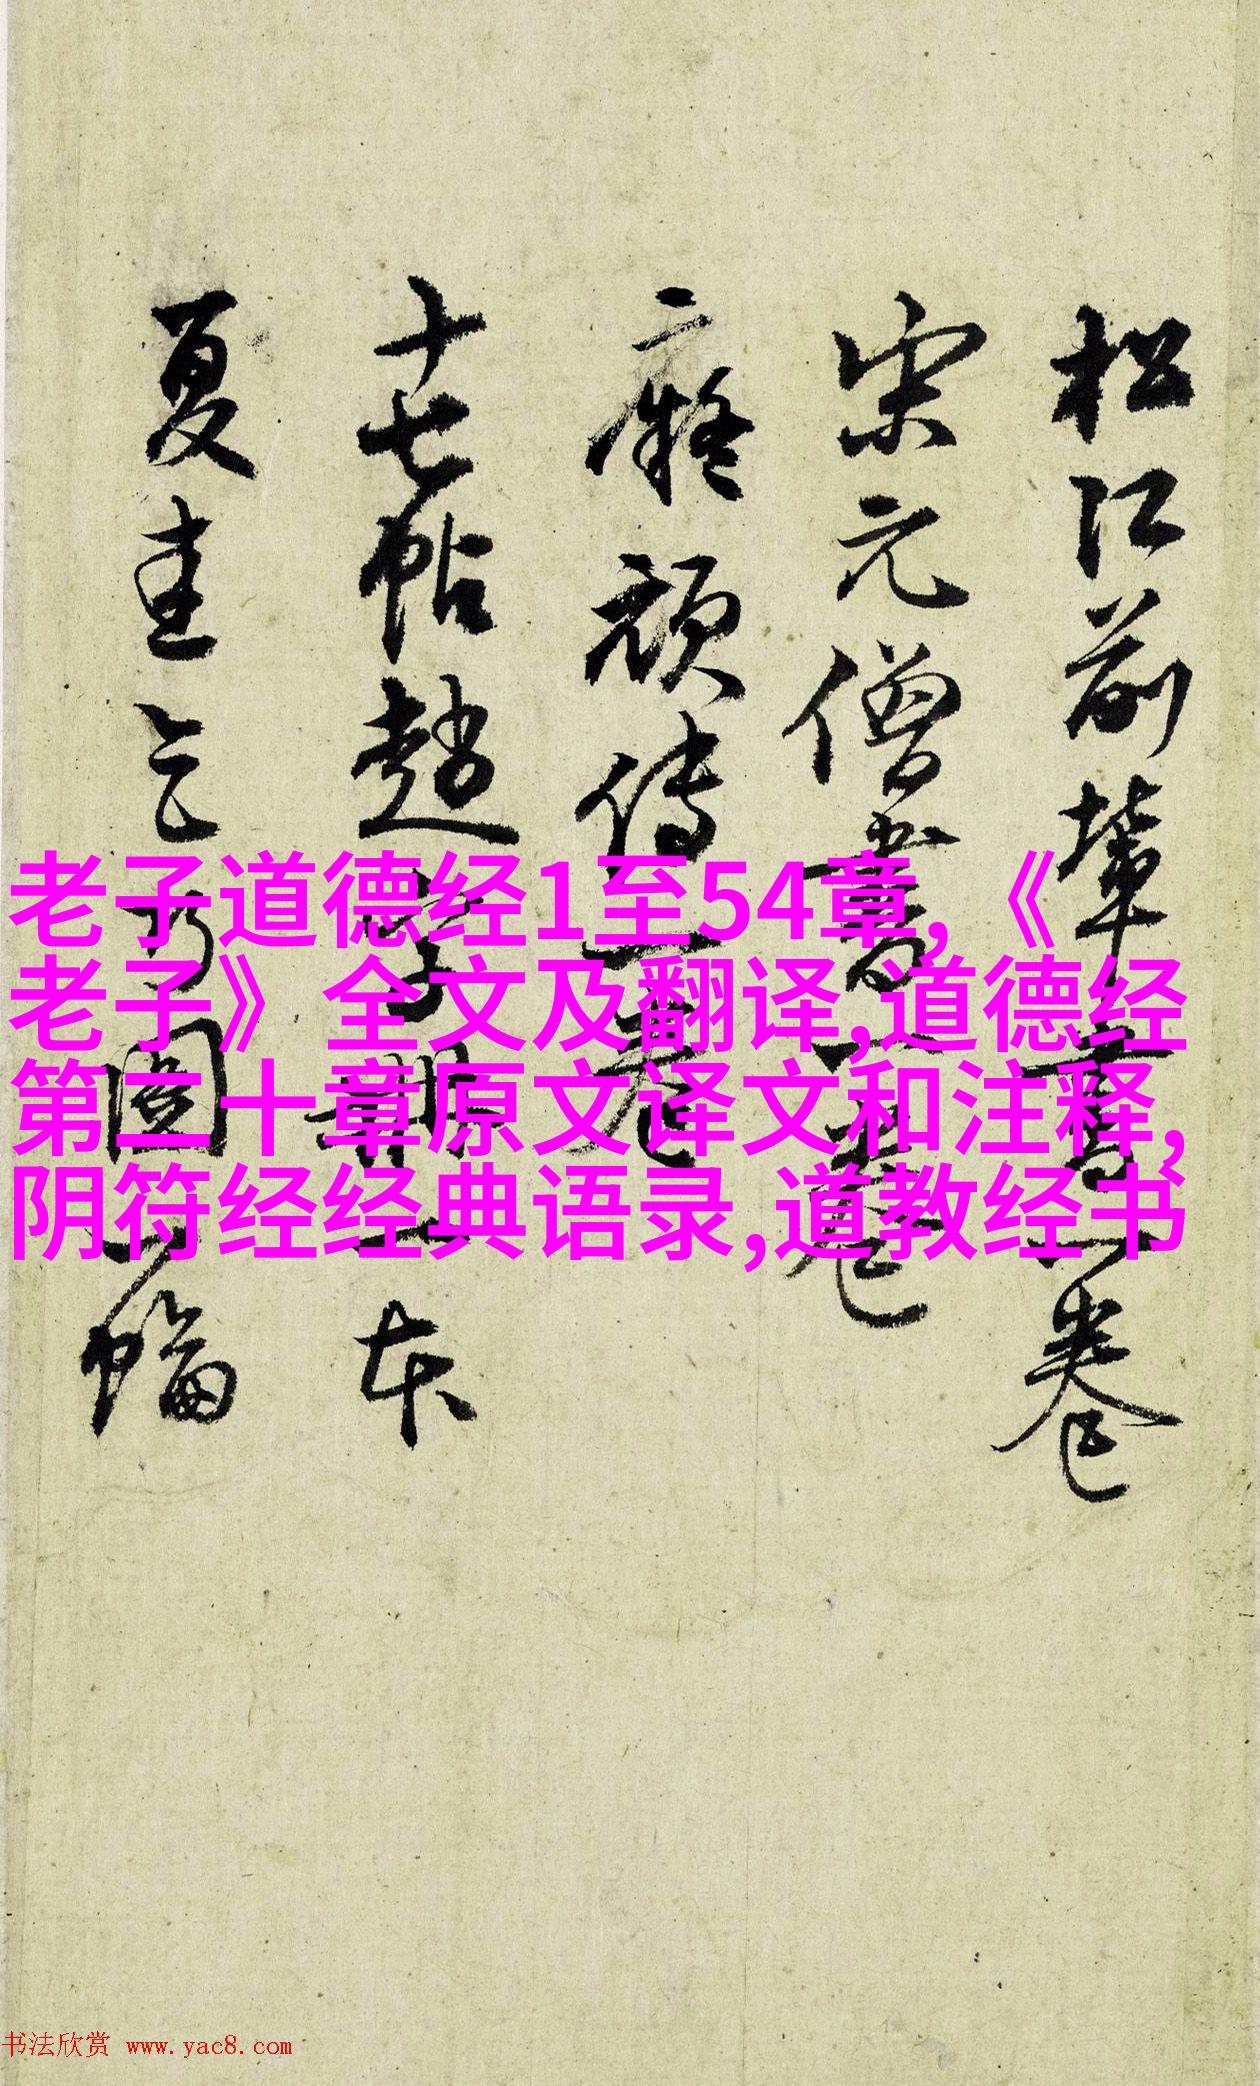 松江前輩書一卷
宋元僧書一卷
二癡頑傳一卷
十七帖趙字冊一本
夏圭山圖一幅
老子道德经1至54章,《
老子》全文及翻译,道德经
第二十章原文译文和注释,
阴符经经典语录,道教经书
书法欣赏 www.yac8.com